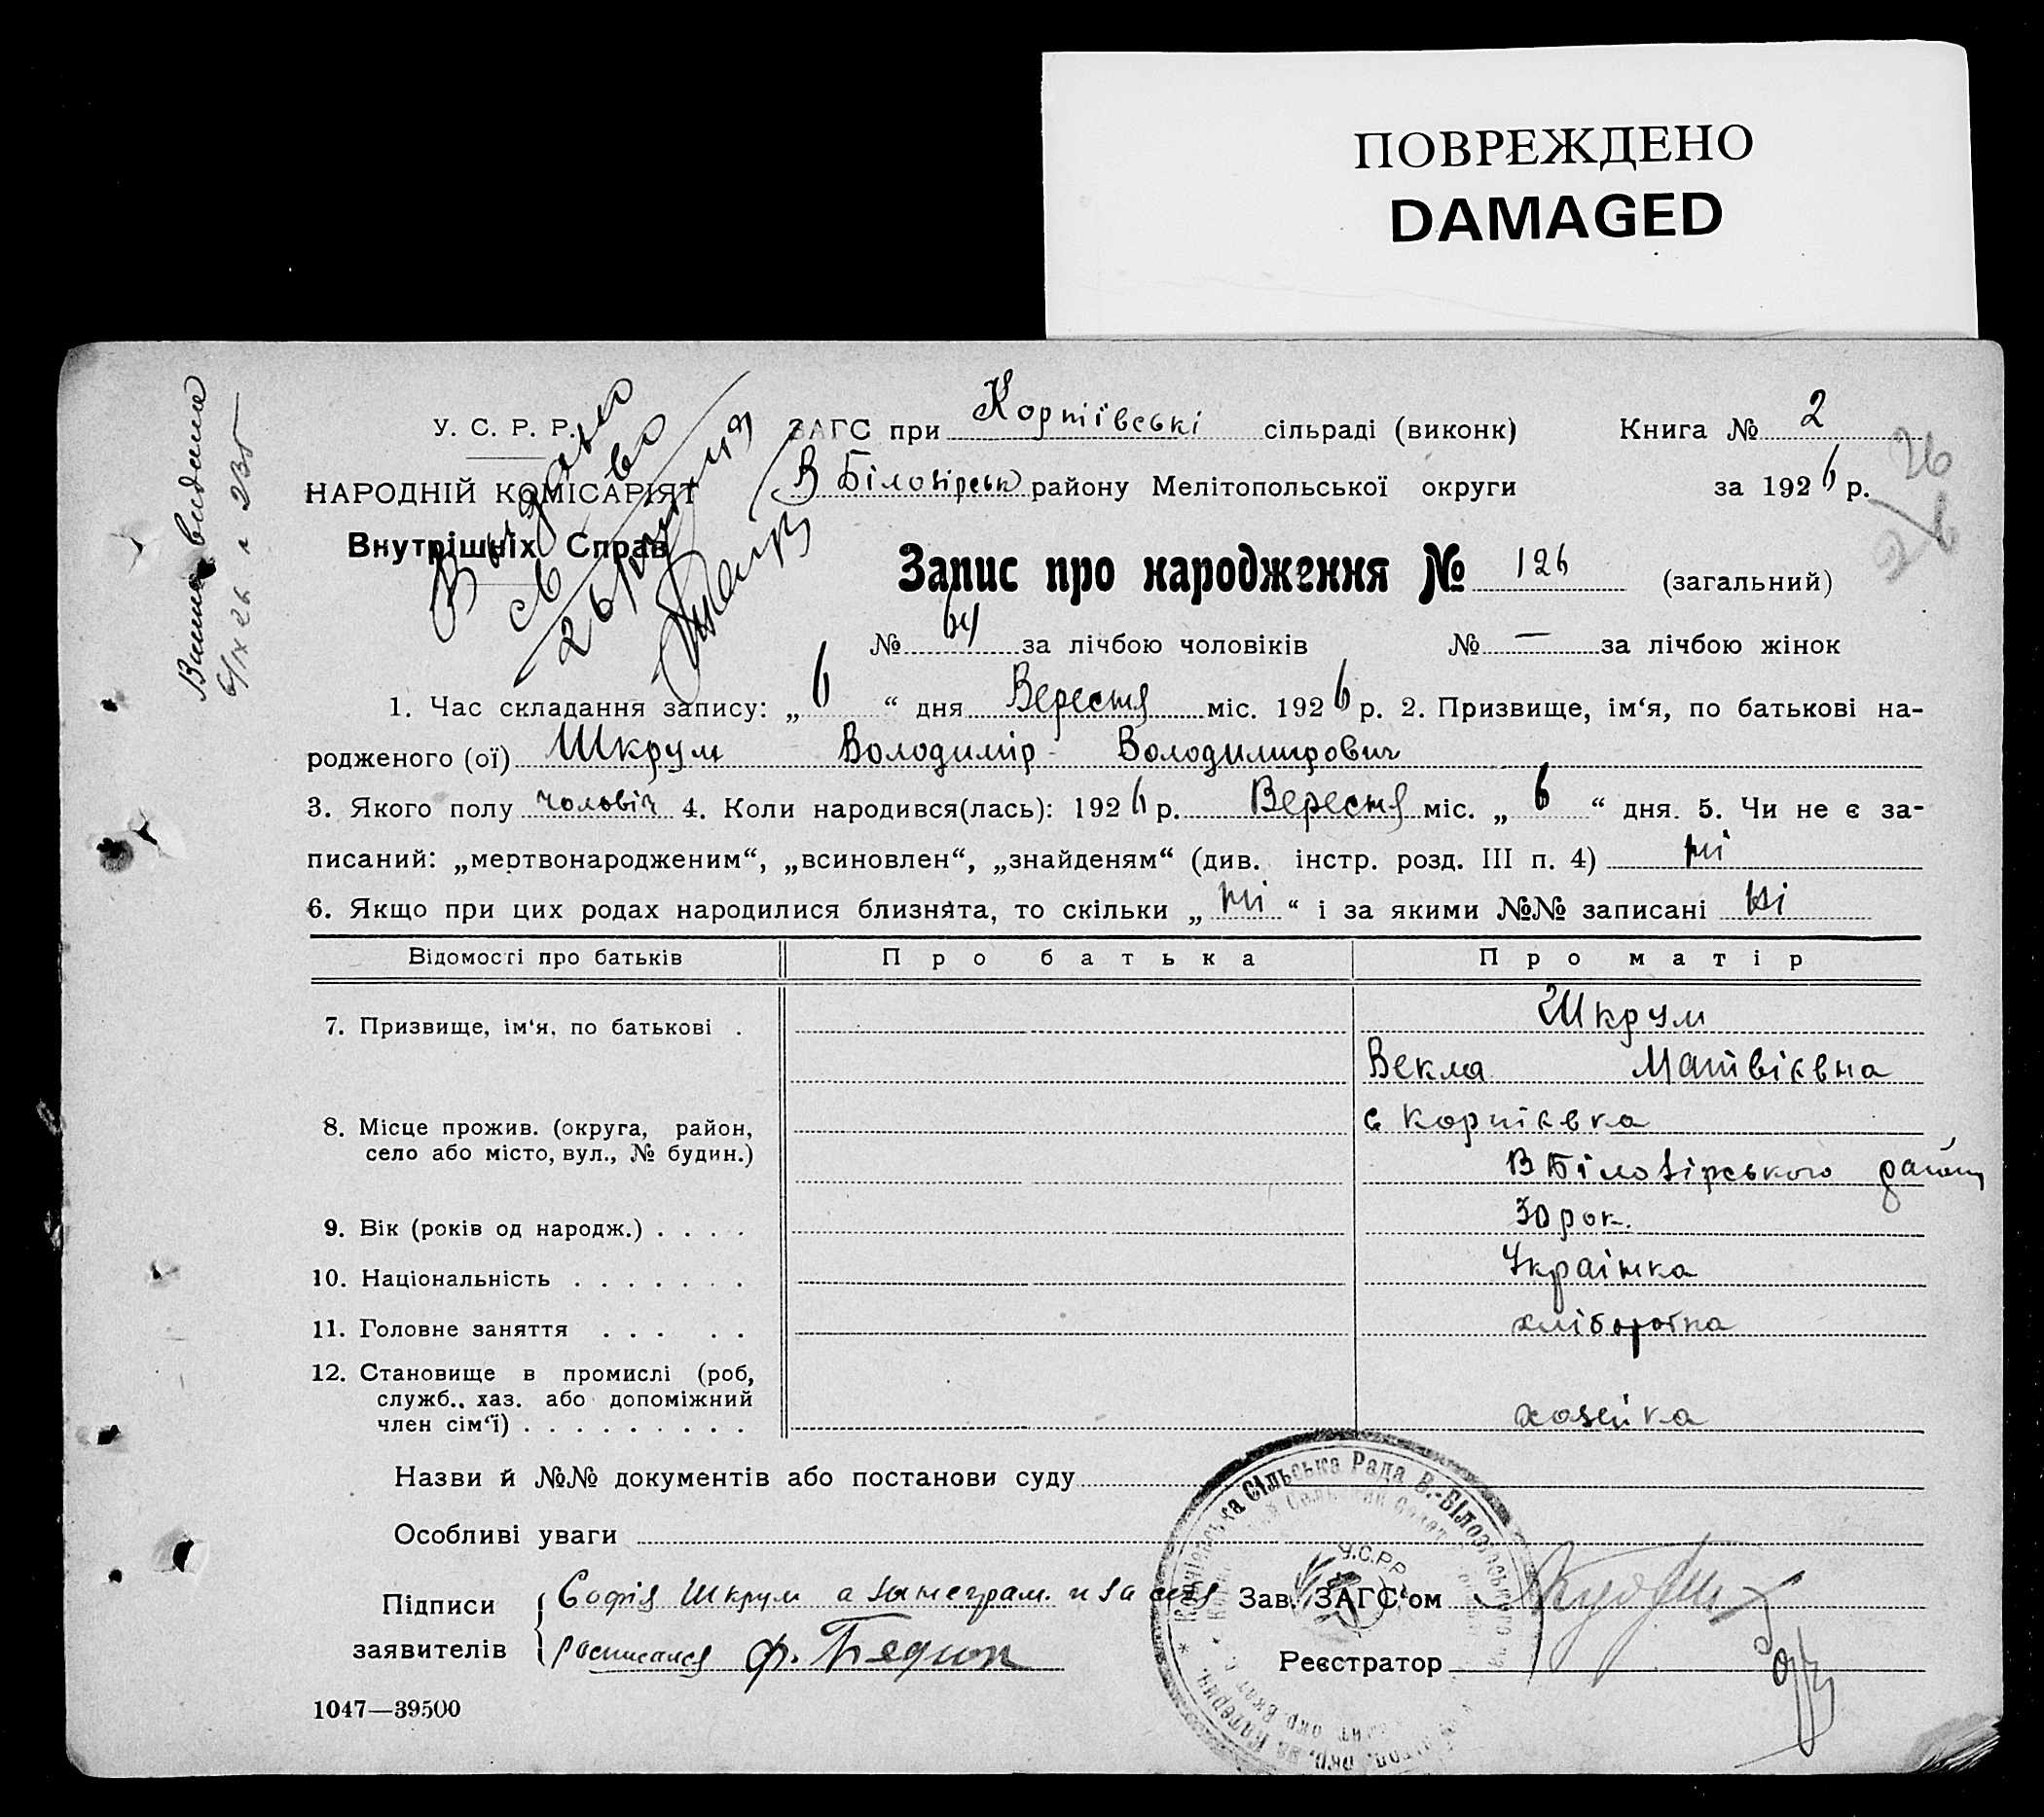 ПОВРЕЖДЕНО
DAMAGED
У. С. Р. Р.
НАРОДНІЙ КОМІСАРІЯТ
Внутрішніх Справ
Видано
ЗАГС при Корпіівські сільраді (виконк) Книга № 2
В Білозірськ району Мелітопольської округи за 1926 р.
26
Запис про народження № 126 (загальний)
№ 64 за лічбою чоловіків № — за лічбою жінок
1. Час складання запису: „6“ дня Вересня міс. 1926 р. 2. Призвище, ім‘я, по батькові на-
родженого (ої) Шкрум Володимір Володимирович
3. Якого полу чоловіч 4. Коли народився(лась): 1926 р. Вересня міс. „6“ дня. 5. Чи не є за-
писаний: „мертвонародженим“, „всиновлен“, „знайденям“ (див. інстр. розд. III п. 4) ні
6. Якщо при цих родах народилися близнята, то скільки „ні“ і за якими №№ записані ні
Відомості про батьків Про батька Про матір
7. Призвище, ім‘я, по батькові . Шкрум
Векла Матвієвна
8. Місце прожив. (округа, район, с Корпієвка
село або місто, вул., № будин.) В Білозірського району
9. Вік (років од народж.) . . . . 30 рок.
10. Національність . . . . . . . Украінка
11. Головне заняття . . . . . хлібо
12. Становище в промислі (роб,
служб., хаз. або допоміжний
член сім‘ї) . . . . . . . . . хозяйка
Назви й №№ документів або постанови суду
Особливі уваги
Підписи заявителів Софія Шкрум а за неграм. и за себя
росписался Ф.
Зав. ЗАГС‘ом
Реєстратор
Сільська Рада В.-Білозірського
У.С.Р.Р.
1047—39500